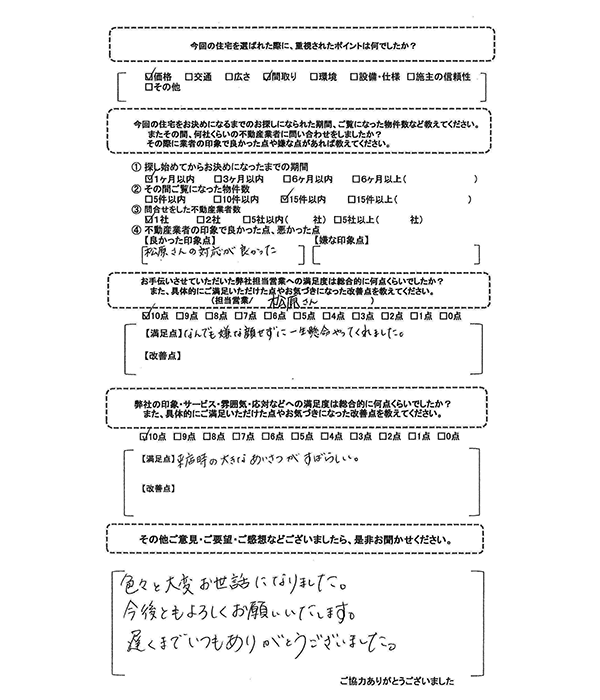 今回の住宅を選ばれた際に、重視されたポイントは何でしたか？
☑価格 □交通 □広さ ☑間取り □環境 □設備・仕様 □施主の信頼性
□その他
今回の住宅をお決めになるまでのお探しになられた期間、ご覧になった物件数など教えてください。
またその間、何社くらいの不動産業者に問い合わせをしましたか？
その際に業者の印象で良かった点や嫌な点があれば教えてください。
① 探し始めてからお決めになったまでの期間
☑1ヶ月以内 □3ヶ月以内 □6ヶ月以内 □6ヶ月以上( )
② その間ご覧になった物件数
□5件以内 □10件以内 ☑15件以内 □15件以上( )
③ 問合せをした不動産業者数
☑1社 □2社 □5社以内( 社) □5社以上( 社)
④ 不動産業者の印象で良かった点、悪かった点
【良かった印象点】 【嫌な印象点】
松原さんの対応が良かった
お手伝いさせていただいた弊社担当営業への満足度は総合的に何点くらいでしたか？
また、具体的にご満足いただけた点やお気づきになった改善点を教えてください。
(担当営業/ 松原さん )
☑10点 □9点 □8点 □7点 □6点 □5点 □4点 □3点 □2点 □1点 □0点
【満足点】なんでも嫌な顔せずに一生懸命やってくれました。
【改善点】
弊社の印象・サービス・雰囲気・応対などへの満足度は総合的に何点くらいでしたか？
また、具体的にご満足いただけた点やお気づきになった改善点を教えてください。
☑10点 □9点 □8点 □7点 □6点 □5点 □4点 □3点 □2点 □1点 □0点
【満足点】来店時の大きなあいさつがすばらしい。
【改善点】
その他ご意見・ご要望・ご感想などございましたら、是非お聞かせください。
色々と大変お世話になりました。
今後ともよろしくお願いいたします。
遅くまでいつもありがとうございました。
ご協力ありがとうございました